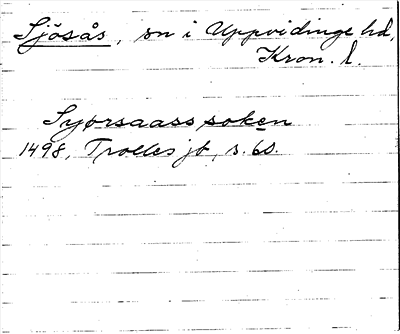 Sjösås, sn i Uppvidinge hd,
Kron. l.
Syørsaass soken
1498, Trolles jb, s. 60.